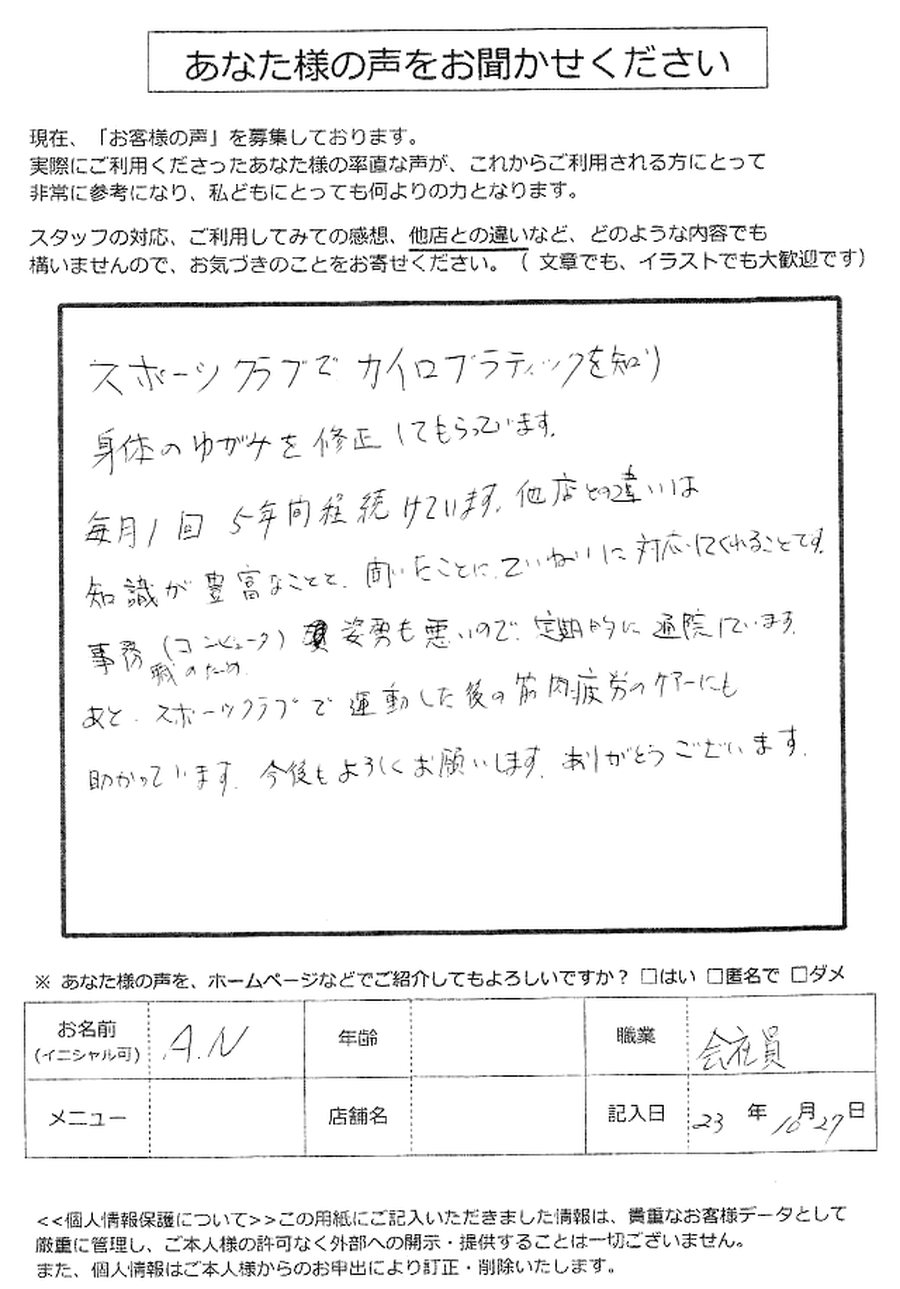 あなた様の声をお聞かせください
現在、「お客様の声」を募集しております。
実際にご利用くださったあなた様の率直な声が、これからご利用される方にとって
非常に参考になり、私どもにとっても何よりの力となります。
スタッフの対応、ご利用してみての感想、他店との違いなど、どのような内容でも
構いませんので、お気づきのことをお寄せください。（ 文章でも、イラストでも大歓迎です）
スポーツクラブで カイロプラティックを知り
身体のゆがみを修正してもらっています。
毎月1回 5年間程続けています。他店との違いは
知識が豊富なことと、聞いたことに、ていねいに対応してくれることです。
事務(コンピュータ) 姿勢も悪いので、定期的に通院しています。
職のため
あと、スポーツクラブで運動した後の筋肉疲労のケアーにも
助かっています。今後もよろしくお願いします。ありがとうございます。
※ あなた様の声を、ホームページなどでご紹介してもよろしいですか？ □はい □匿名で □ダメ
お名前 A.N 年齢 職業 会社員
(イニシャル可)
メニュー 店舗名 記入日 23 年 10月27日
<<個人情報保護について>>この用紙にご記入いただきました情報は、貴重なお客様データとして
厳重に管理し、ご本人様の許可なく外部への開示・提供することは一切ございません。
また、個人情報はご本人様からのお申出により訂正・削除いたします。